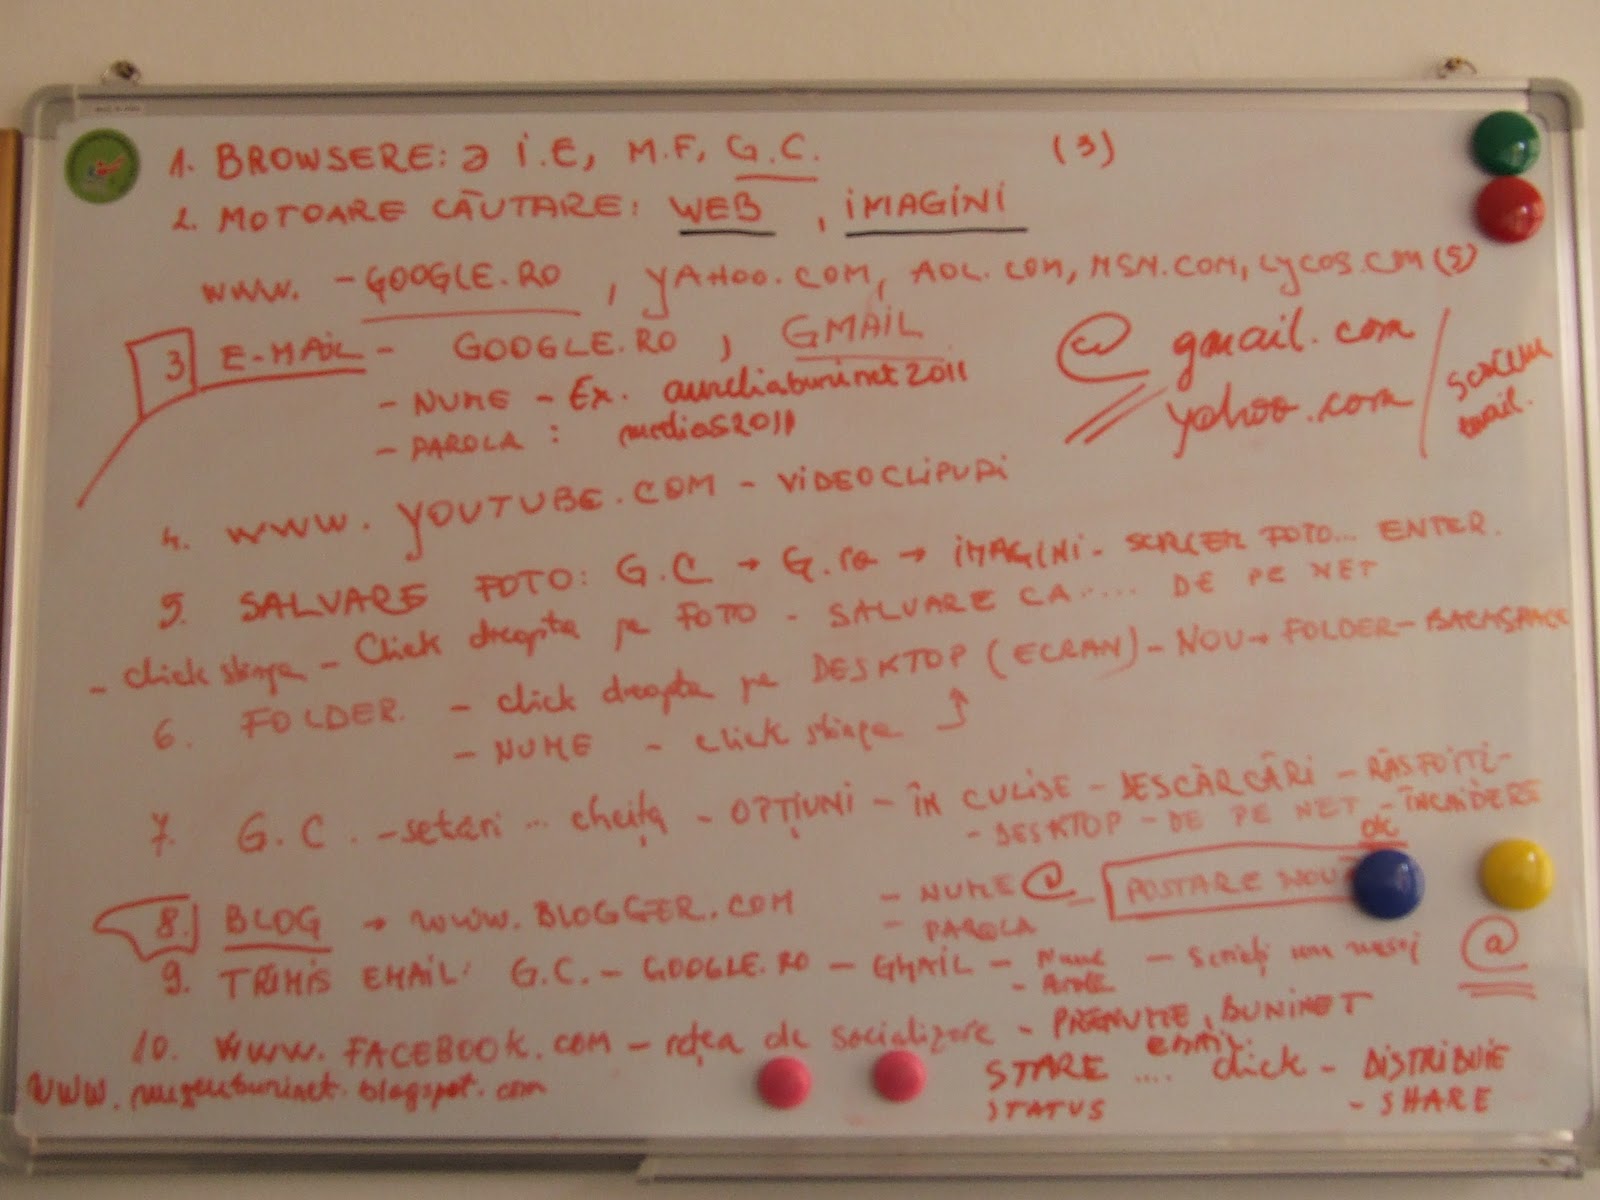 1. BROWSERE: ə i.E, M.F, G.C. (3)
2. MOTOARE CĂUTARE: WEB , iMAGiNi
WWW. - GOOGLE.RO , YAHOO.COM, AOL.COM, MSN.COM, LYCOS.COM (5)
3 E-MAiL - GOOGLE.RO , GMAiL
- NUME - Ex. aureliabuninet2011
- PAROLA : medias2011
@ gmail.com
yahoo.com
4. WWW. YOUTUBE.COM - ViDEOCLiPURi
5. SALVARE FOTO: G.C → G.ro → iMAGiNi - SCRIEM FOTO... ENTER.
- Click stinga - Click dreapta pe FOTO - SALVARE CA..... DE PE NET
6. FOLDER. - click dreapta pe DESKTOP (ECRAN) - NOU → FOLDER - BACKSPACE
- NUME - click stinga
7. G.C. - setari ... cheița - OPȚIUNI - ÎN CULISE - DESCĂRCĂRi - RĂSFOIȚI -
- DESKTOP - DE PE NET - ÎNCHIDERE
OK
8. BLOG → WWW.BLOGGER.COM - NUME @ POSTARE NOUĂ
- PAROLA
9. TRIMIS EMAIL: G.C. - GOOGLE.RO - GMAIL - Nume - Scrieți un mesaj @
- Parola
10. WWW.FACEBOOK.COM - rețea de socializare - PRENUME, BUNINET
STARE .... click - DISTRIBUIE
STATUS - SHARE
WWW. .blogspot.com